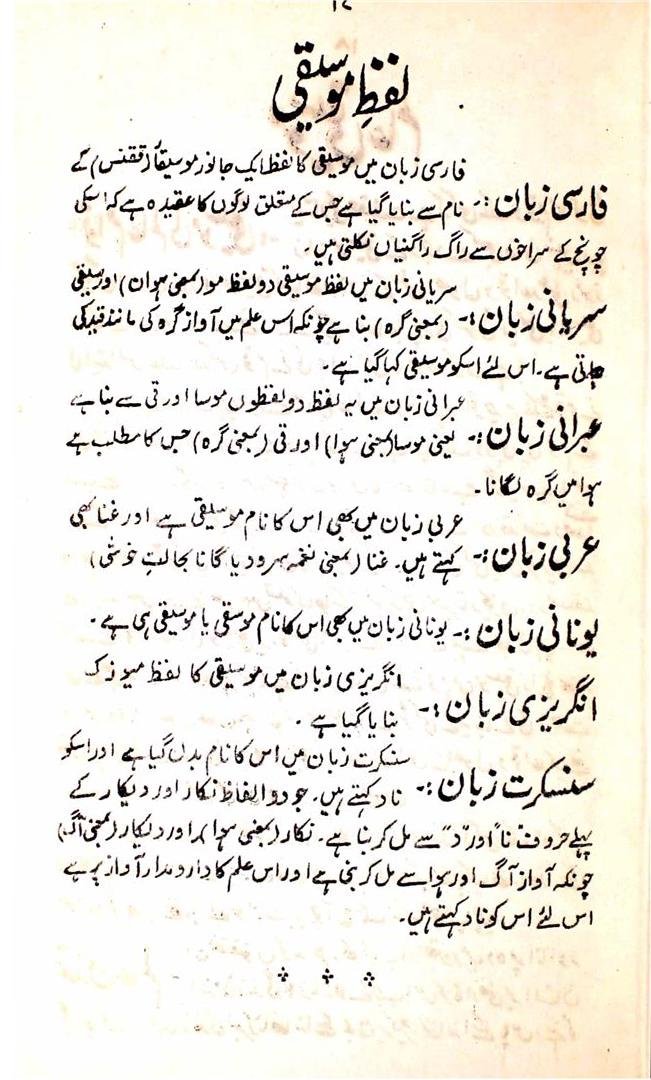 ۱۷
لفظِ موسیقی
فارسی زبان میں موسیقی کا لفظ ایک جانور موسیقار (ققنس) کے
فارسی زبان :۔ نام سے بنایا گیا ہے جس کے متعلق لوگوں کا عقیدہ ہے کہ اسکی
چونچ کے سراخوں سے راگ راگنیاں نکلتی ہیں۔
سریانی زبان میں لفظ موسیقی دو لفظ مو (بمعنی ہوان) اور سیقی
سریانی زبان :۔ (بمعنی گرہ) بنا ہے چونکہ اس علم میں آواز گرہ کی مانند قید کی
جاتی ہے۔ اس لئے اسکو موسیقی کہا گیا ہے۔
عبرانی زبان میں یہ لفظ دو لفظوں موسا اور قی سے بنا ہے
عبرانی زبان :۔ یعنی موسا (بمعنی ہوا) اور قی (بمعنی گرہ) جس کا مطلب ہے
ہوا میں گرہ لگانا۔
عربی زبان میں بھی اس کا نام موسیقی ہے اور غنا بھی
عربی زبان :۔ کہتے ہیں۔ غنا (بمعنی نغمہ سرود یا گانا بحالتِ خوشی)
یونانی زبان :۔ یونانی زبان میں بھی اس کا نام موسقی یا موسیقی ہی ہے۔
انگریزی زبان میں موسیقی کا لفظ میوزک
انگریزی زبان :۔ بنایا گیا ہے۔
سنسکرت زبان میں اس کا نام بدل گیا ہے اور اسکو
سنسکرت زبان :۔ ناد کہتے ہیں۔ جو دو الفاظ نکار اور دیکار کے
پہلے حروف "نا" اور "د" سے مل کر بنا ہے۔ نکار (بمعنی ہوا) اور دیکار (بمعنی آگ)
چونکہ آواز آگ اور ہوا سے مل کر بنی ہے اور اس علم کا دارومدار آواز پر ہے
اس لئے اس کو ناد کہتے ہیں۔